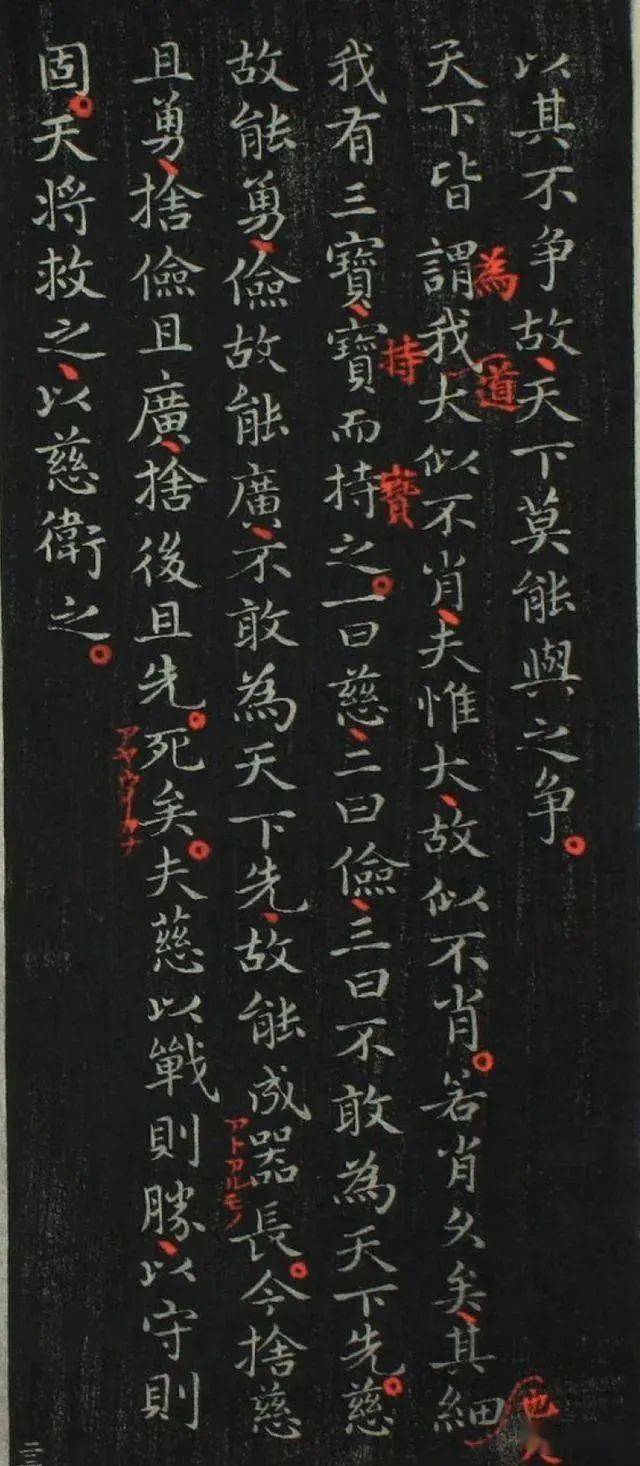 以其不争故天下莫能與之争
天下皆謂我大似不肖夫惟大故似不肖若肖久矣其細
為
道
我有三寶寶而持之一曰慈二曰儉三曰不敢為天下先慈
持
寶
故能勇儉故能廣不敢為天下先故能成器長今捨慈
アトアルモノ
且勇捨儉且廣捨後且先死矣夫慈以戰則勝以守則
固天將救之以慈衛之